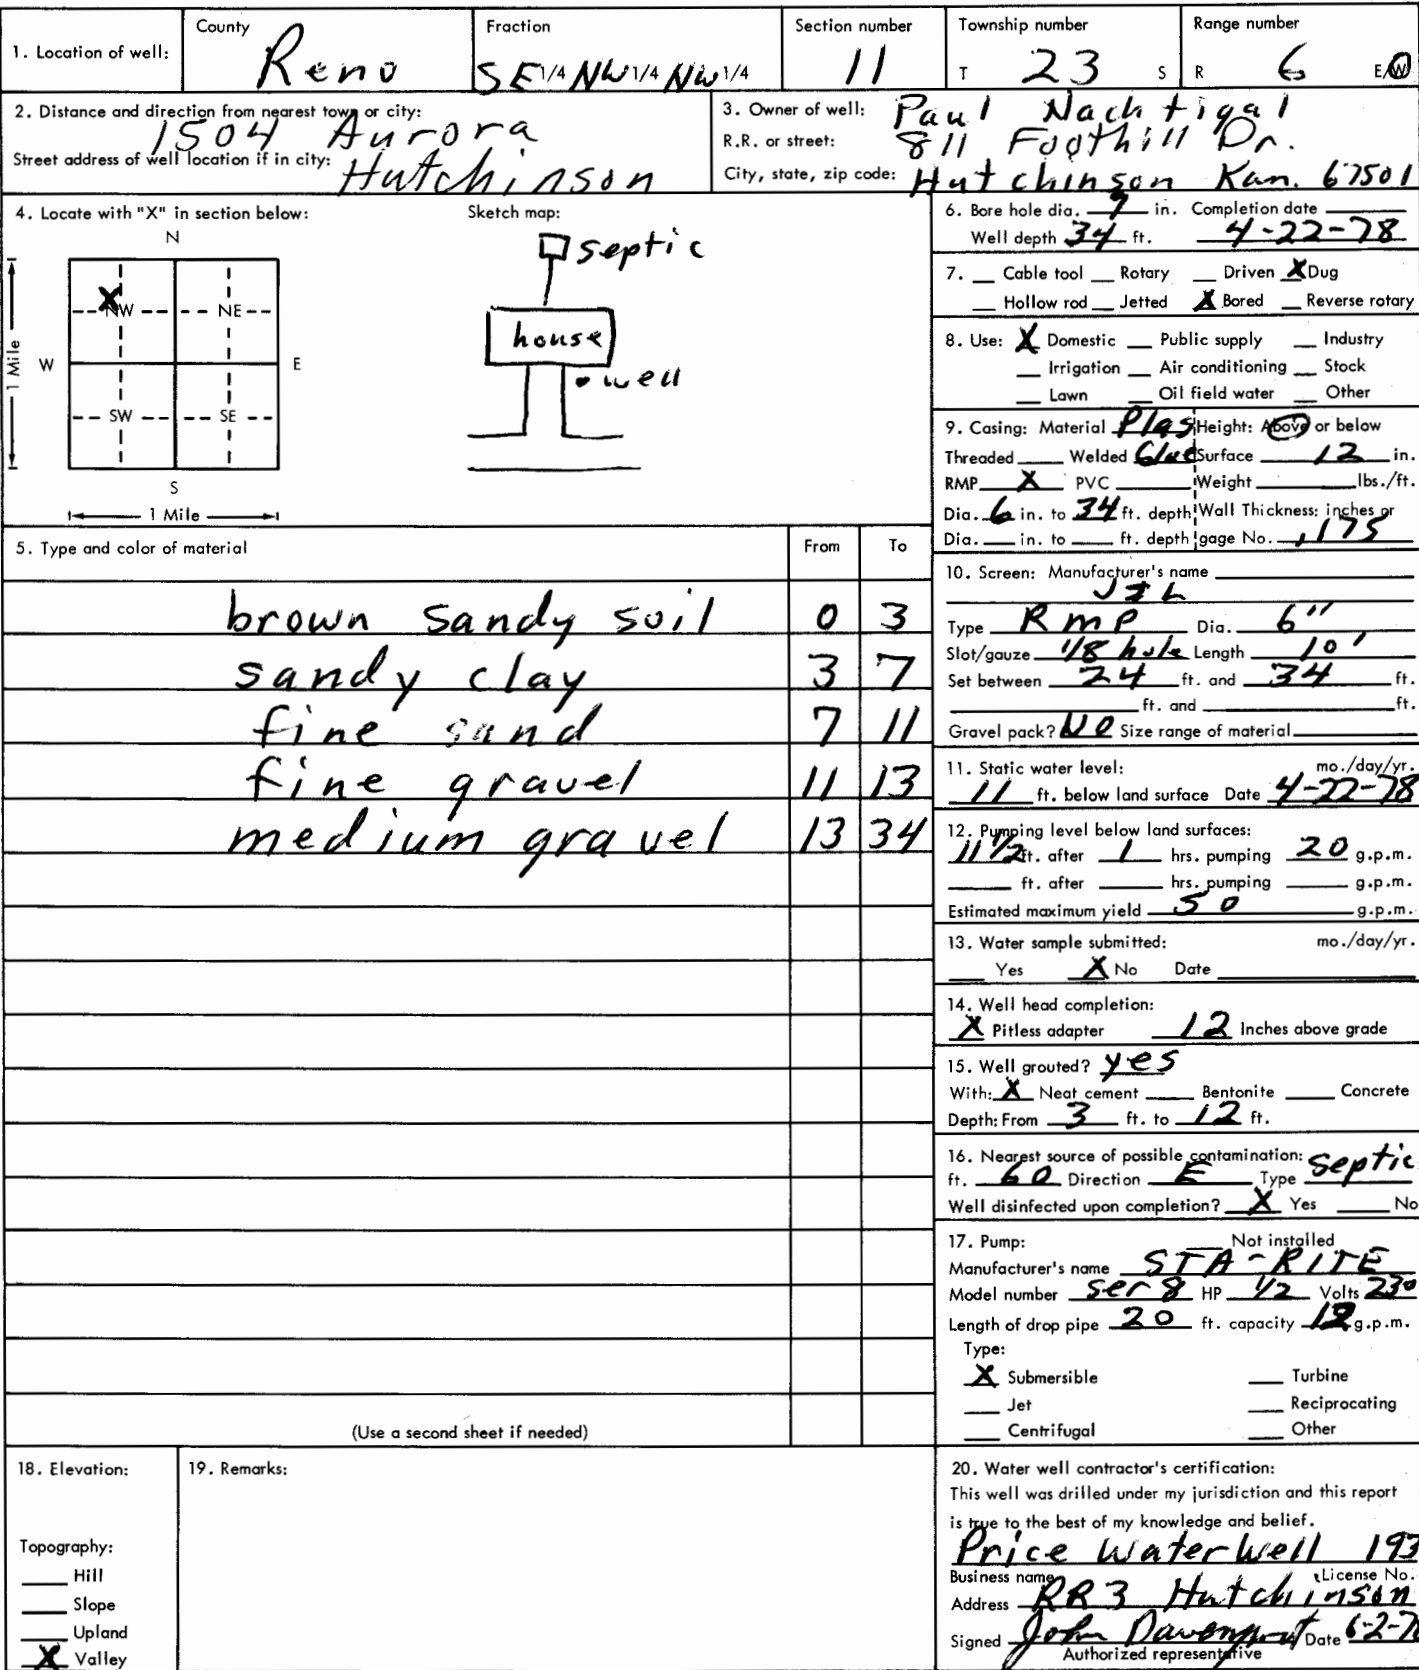 1. Location of well: County Reno Fraction SE 1/4 NW 1/4 NW 1/4 Section number 11 Township number T 23 S Range number R 6 E/W
2. Distance and direction from nearest town or city: 1504 Aurora
Street address of well location if in city: Hutchinson
3. Owner of well: Paul Nachtigal
R.R. or street: 811 Foothill Dr.
City, state, zip code: Hutchinson Kan. 67501
4. Locate with "X" in section below:
N
X
NW NE
W E
1 Mile
SW SE
S
1 Mile
Sketch map:
septic
house
well
5. Type and color of material From To
brown sandy soil 0 3
sandy clay 3 7
fine sand 7 11
fine gravel 11 13
medium gravel 13 34
(Use a second sheet if needed)
6. Bore hole dia. 9 in. Completion date
Well depth 34 ft. 4-22-78
7. Cable tool Rotary Driven X Dug
Hollow rod Jetted X Bored Reverse rotary
8. Use: X Domestic Public supply Industry
Irrigation Air conditioning Stock
Lawn Oil field water Other
9. Casing: Material Plas Height: Above or below
Threaded Welded Glue Surface 12 in.
RMP X PVC Weight lbs./ft.
Dia. 6 in. to 34 ft. depth Wall Thickness: inches or
Dia. in. to ft. depth gage No. .175
10. Screen: Manufacturer's name
Type RMP Dia. 6"
Slot/gauze 1/8 hole Length 10'
Set between 24 ft. and 34 ft.
ft. and ft.
Gravel pack? NO Size range of material
11. Static water level: mo./day/yr.
11 ft. below land surface Date 4-22-78
12. Pumping level below land surfaces:
11 1/2 ft. after 1 hrs. pumping 20 g.p.m.
ft. after hrs. pumping g.p.m.
Estimated maximum yield 50 g.p.m.
13. Water sample submitted: mo./day/yr.
Yes X No Date
14. Well head completion:
X Pitless adapter 12 Inches above grade
15. Well grouted? yes
With: X Neat cement Bentonite Concrete
Depth: From 3 ft. to 12 ft.
16. Nearest source of possible contamination:
ft. 60 Direction E Type septic
Well disinfected upon completion? X Yes No
17. Pump: Not installed
Manufacturer's name STA-RITE
Model number ser 8 HP 1/2 Volts 230
Length of drop pipe 20 ft. capacity g.p.m.
Type:
X Submersible Turbine
Jet Reciprocating
Centrifugal Other
18. Elevation:
Topography:
Hill
Slope
Upland
X Valley
19. Remarks:
20. Water well contractor's certification:
This well was drilled under my jurisdiction and this report
is true to the best of my knowledge and belief.
Price Water Well 193
Business name License No.
Address RR3 Hutchinson
Signed John Davenport Date 6-2-7
Authorized representative